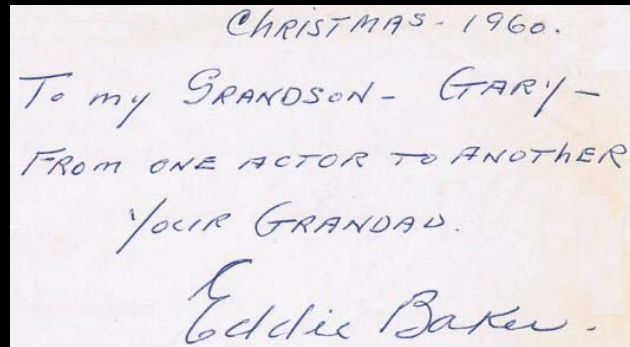 CHRISTMAS - 1960.
To my GRANDSON - GARY -
FROM ONE ACTOR TO ANOTHER
YOUR GRANDAD.
Eddie Baker.